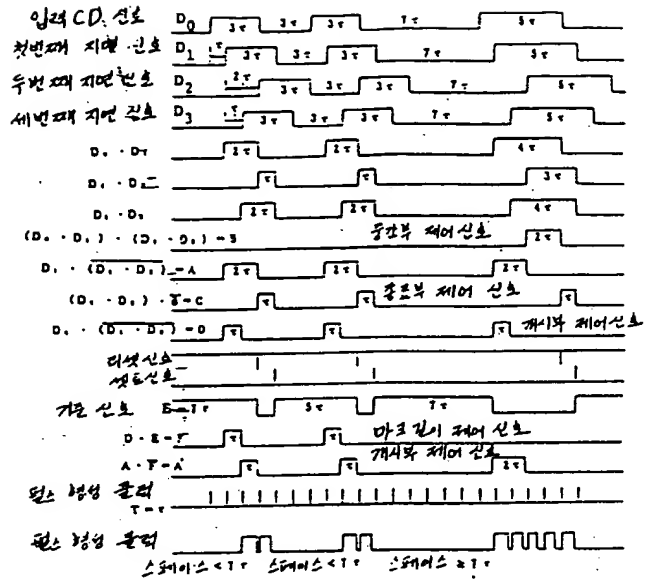 입력 CD 신호 D0 3τ 3τ 3τ 7τ 5τ
첫번째 지연 신호 D1 τ 3τ 3τ 3τ 7τ 5τ
두번째 지연 신호 D2 2τ 3τ 3τ 3τ 7τ 5τ
세번째 지연 신호 D3 3τ 3τ 3τ 7τ 5τ
2τ 2τ 4τ
τ τ 3τ
2τ 2τ 4τ
중간부 제어신호 2τ
= A 2τ 2τ 2τ
= C τ 종료부 제어 신호 τ
= D τ τ τ 개시부 제어신호
리셋신호
셋트신호
기준 신호 5τ 7τ
D · E = F τ τ 마크길이 제어 신호
A · F = A' τ τ 개시부 제어 신호 2τ
펄스 형성 클럭
T = τ
펄스 형성 클럭
스페이스 < 7τ 스페이스 < 7τ 스페이스 ≥ 7τ